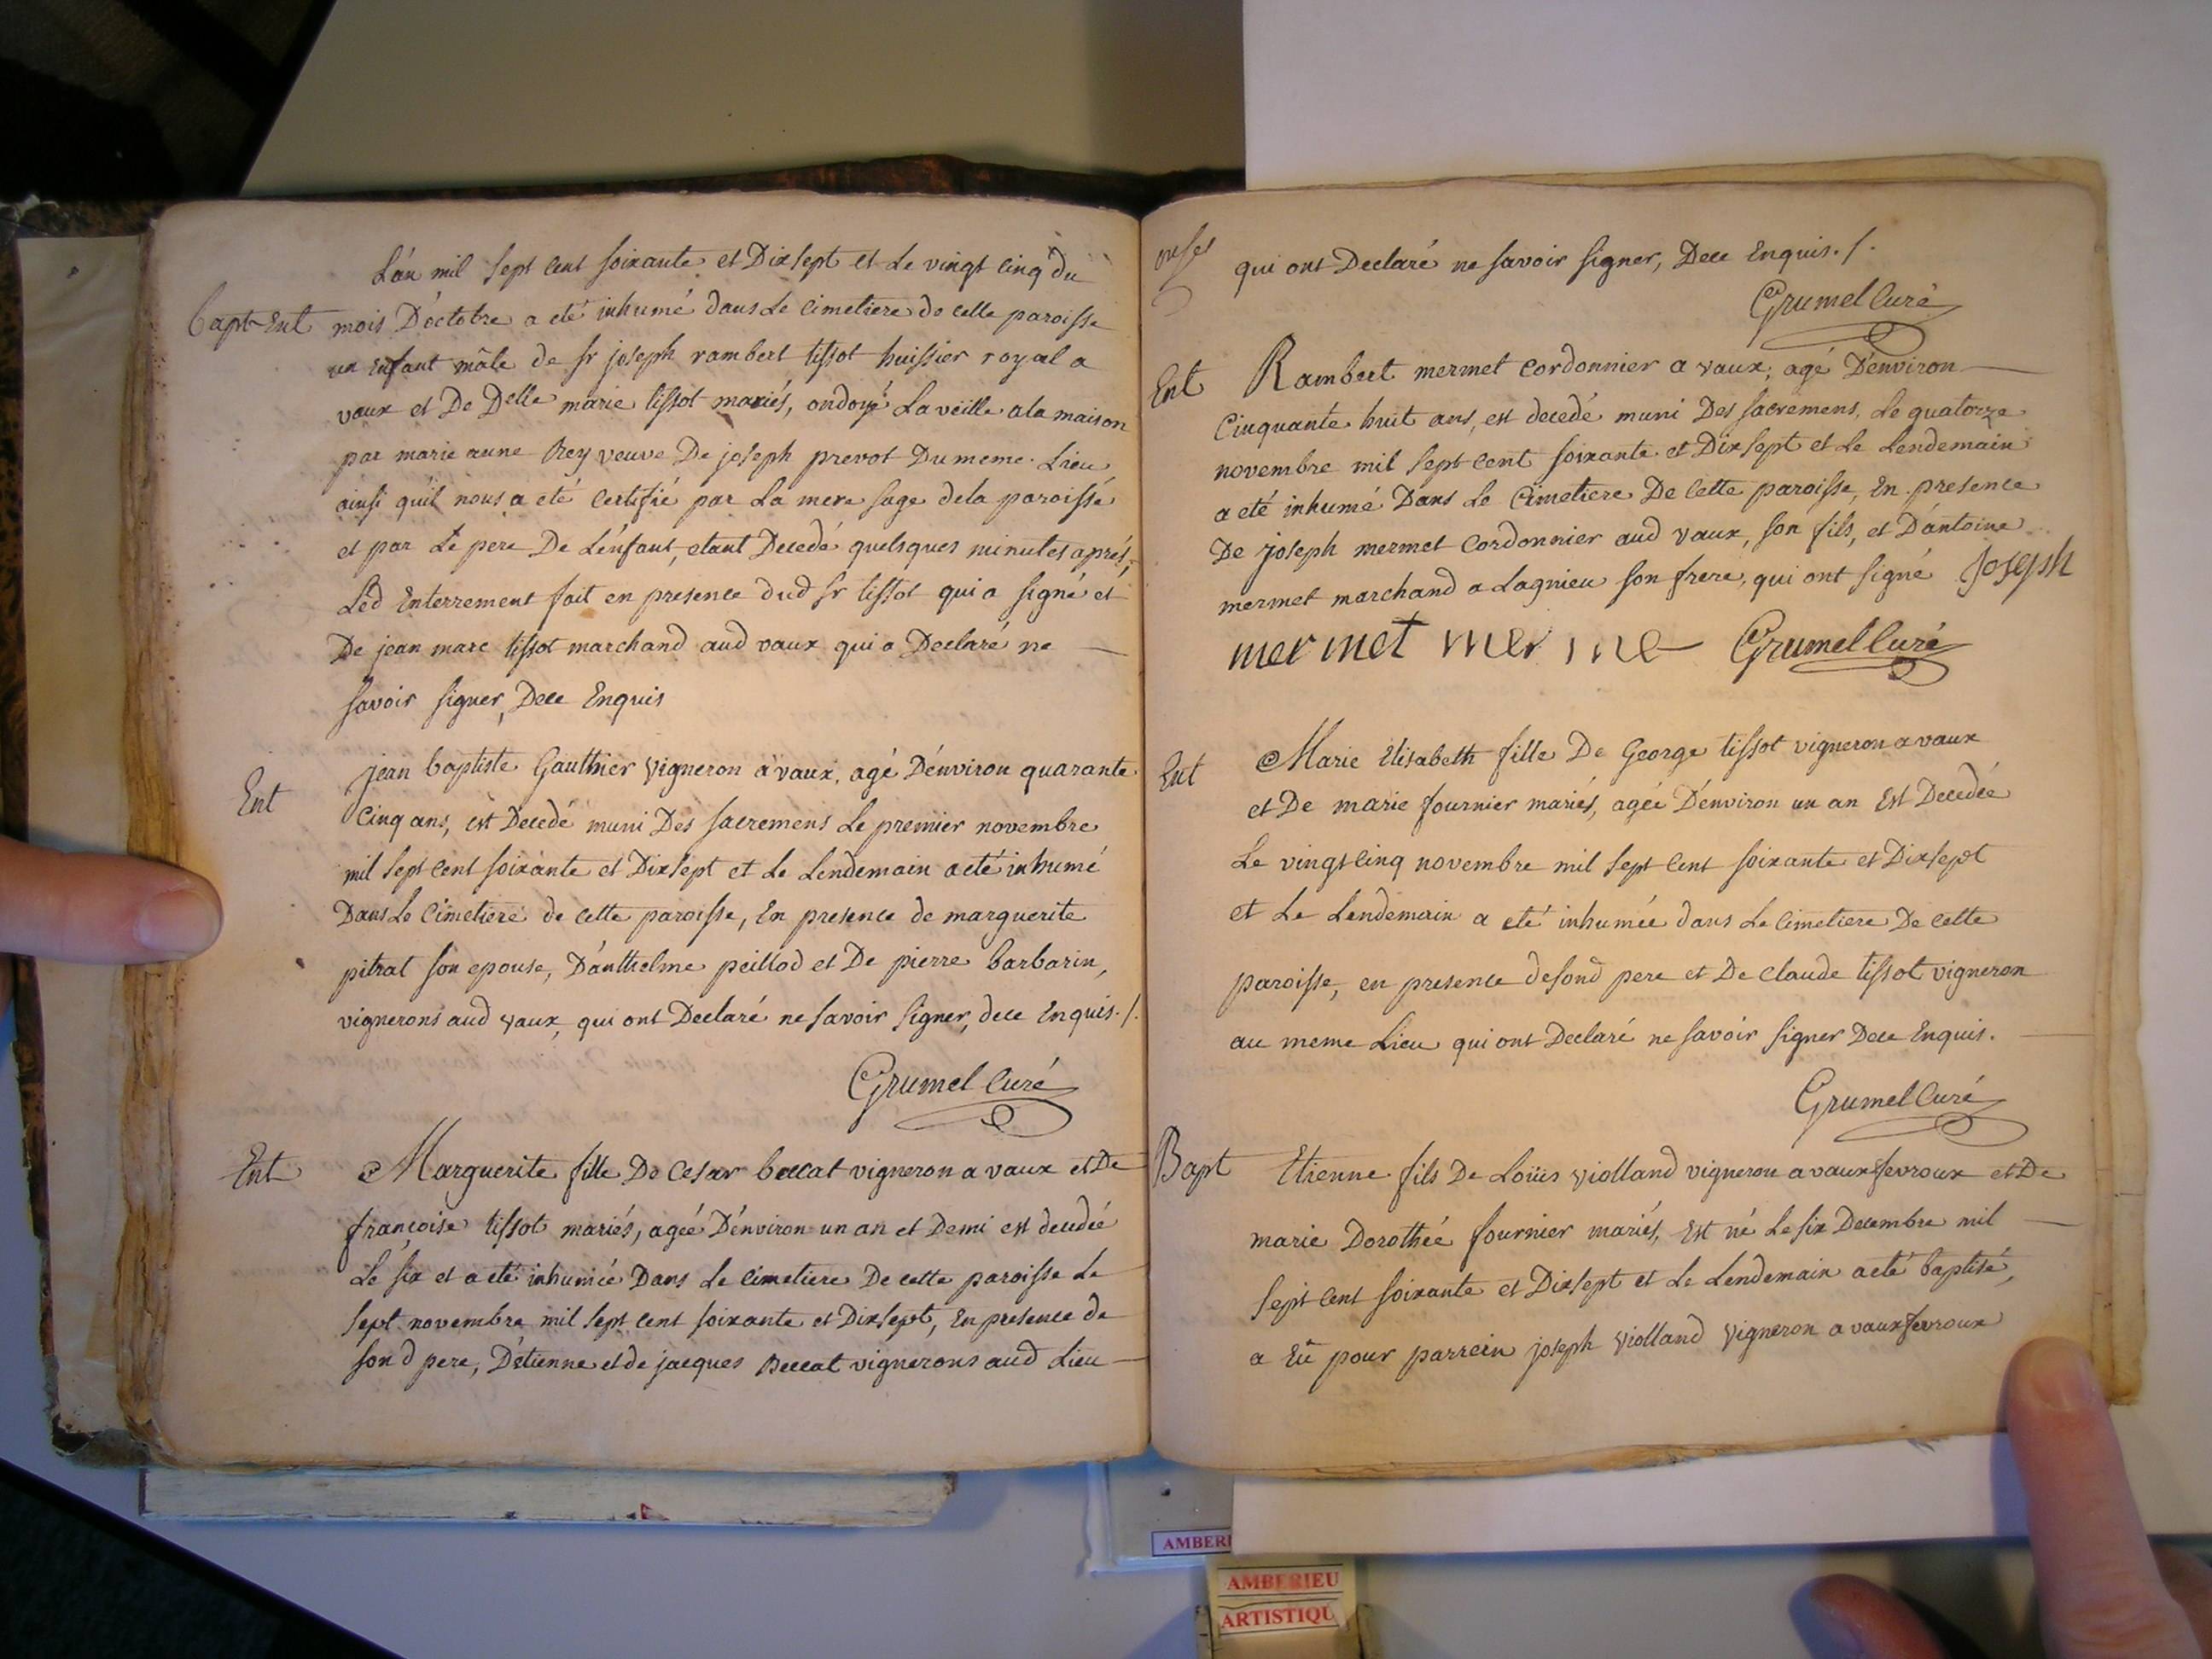 L'an mil sept cent soixante et Dixsept et Le vingt cinq du
Bapt-Ent mois D'octobre a eté inhumé dans Le cimetiere de cette paroisse
un Enfant mâle de Sr joseph rambert tissot huissier royal a
vaux et De Delle marie tissot mariés, ondoyé La veille a la maison
par marie anne Rey veuve De joseph prevot Du meme Lieu
ainsi qu'il nous a eté certifié par La mere sage de la paroisse
et par Le pere De L'enfant, etant Decedé quelsques minutes aprés,
Led Enterrement fait en presence dud Sr tissot qui a signé et
De jean marc tissot marchand aud vaux qui a Declaré ne
savoir signer, Dece Enquis
jean baptiste Gauthier vigneron a vaux, agé D'environ quarante
Ent
cinq ans, est Decedé muni Des sacremens Le premier novembre
mil sept cent soixante et Dixsept et Le Lendemain a eté inhumé
Dans Le Cimetiere de cette paroisse, En presence de marguerite
pitrat son epouse, D'anthelme peillod et De pierre barbarin,
vignerons aud vaux, qui ont Declaré ne savoir signer, dece Enquis./.
Grumel Curé
Ent Marguerite fille De Cesar beccat vigneron a vaux et De
françoise tissot mariés, agée D'environ un an et Demi est decedée
Le six et a eté inhumée Dans Le cimetiere De cette paroisse Le
sept novembre mil sept cent soixante et Dixsept, En presence de
sond pere, D'etienne et de jacques Beccat vignerons aud Lieu
qui ont Declaré ne savoir signer, Dece Enquis./.
Grumel Curé
Ent Rambert mermet Cordonnier a vaux, agé D'environ
Cinquante huit ans, est decedé muni Des sacremens, Le quatorze
novembre mil sept cent soixante et Dixsept et Le Lendemain
a eté inhumé Dans Le Cimetiere De cette paroisse, En presence
De joseph mermet Cordonnier aud vaux, son fils, et D'antoine
mermet marchand a Lagnieu son frere, qui ont signé Joseph
mermet mer me Grumel Curé
Ent Marie Elisabeth fille De George tissot vigneron a vaux
et De marie fournier mariés, agée D'environ un an Est Decedée
Le vingt cinq novembre mil sept cent soixante et Dixsept
et Le Lendemain a eté inhumée dans Le cimetiere De cette
paroisse, en presence de sond pere et De claude tissot vigneron
au meme Lieu qui ont Declaré ne savoir signer Dece Enquis.
Grumel Curé
Bapt Etienne fils De Loüis violland vigneron a vauxfevroux et De
marie Dorothée fournier mariés, Est né Le six Decembre mil
sept cent soixante et Dixsept et Le Lendemain a eté baptisé,
a Eu pour parrein joseph violland vigneron a vauxfevroux
AMBERI
AMBERIEU
ARTISTIQU